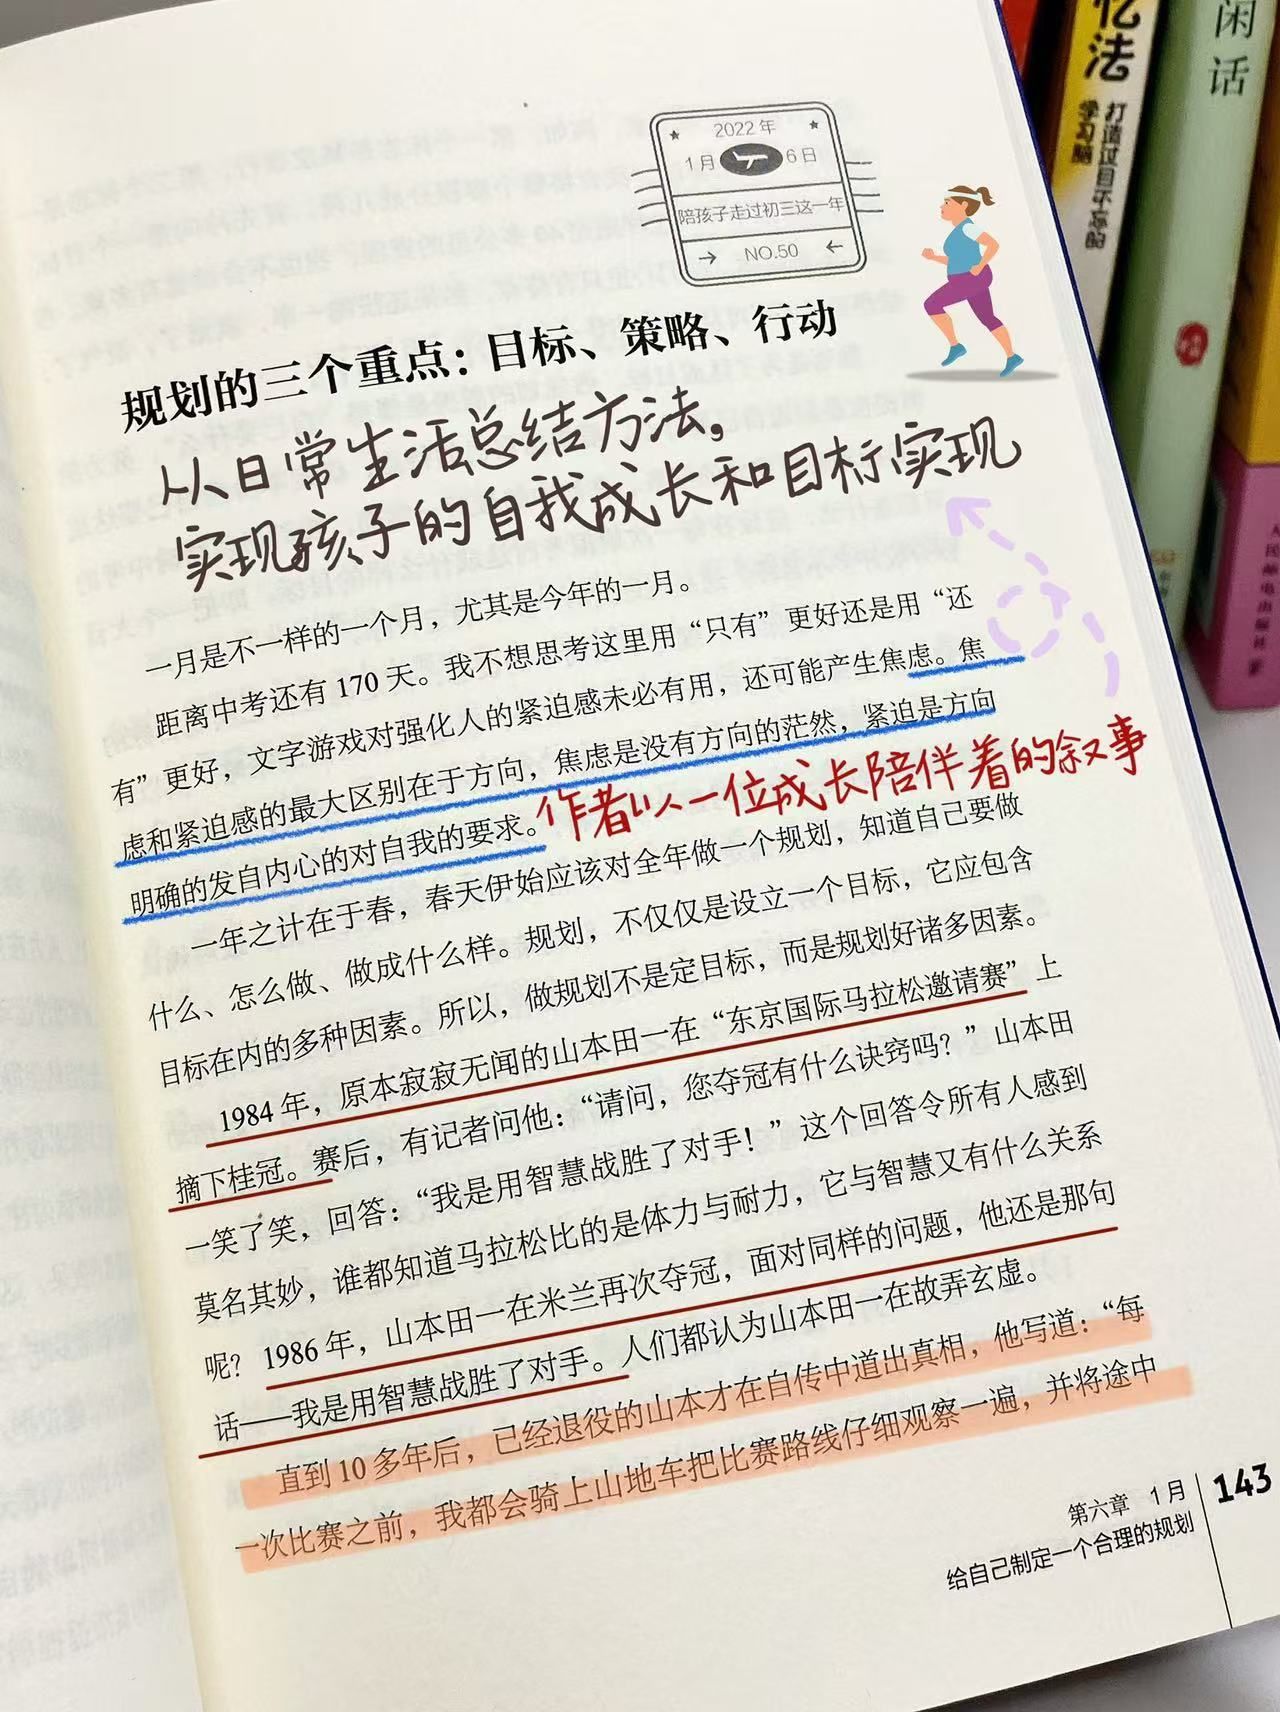 2022年
1月 6日
陪孩子走过初三这一年
NO.50
规划的三个重点：目标、策略、行动
从日常生活总结方法，
实现孩子的自我成长和目标实现
一月是不一样的一个月，尤其是今年的一月。
距离中考还有170天。我不想思考这里用“只有”更好还是用“还
有”更好，文字游戏对强化人的紧迫感未必有用，还可能产生焦虑。焦
虑和紧迫感的最大区别在于方向，焦虑是没有方向的茫然，紧迫是方向
明确的发自内心的对自我的要求。
作者以一位成长陪伴着的叙事
一年之计在于春，春天伊始应该对全年做一个规划，知道自己要做
什么、怎么做、做成什么样。规划，不仅仅是设立一个目标，它应包含
目标在内的多种因素。所以，做规划不是定目标，而是规划好诸多因素。
1984年，原本寂寂无闻的山本田一在“东京国际马拉松邀请赛”上
摘下桂冠。赛后，有记者问他：“请问，您夺冠有什么诀窍吗？”山本田
一笑了笑，回答：“我是用智慧战胜了对手！”这个回答令所有人感到
莫名其妙，谁都知道马拉松比的是体力与耐力，它与智慧又有什么关系
呢？1986年，山本田一在米兰再次夺冠，面对同样的问题，他还是那句
话——我是用智慧战胜了对手。人们都认为山本田一在故弄玄虚。
直到10多年后，已经退役的山本才在自传中道出真相，他写道：“每
一次比赛之前，我都会骑上山地车把比赛路线仔细观察一遍，并将途中
第六章 1月
给自己制定一个合理的规划
143
忆法
打造过目不忘的
学习脑
闲话
人民邮电出版社